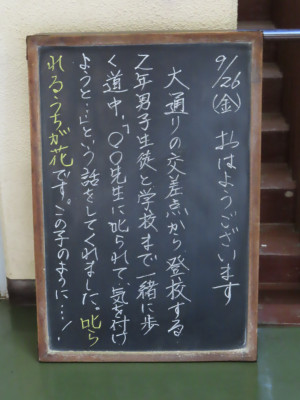 9/26(金) おはようございます
大通りの交差点から登校する
2年男子生徒と学校まで一緒に歩
く道中、「○○先生に叱られて、気を付け
ようと…」という話をしてくれました。叱ら
れるうちが花です。この子のように…!